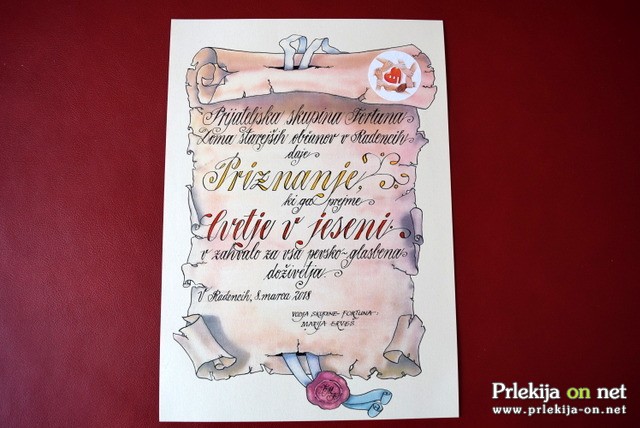 Prijateljska skupina Fortuna
Doma starejših občanov v Radencih
daje
Priznanje,
ki ga prejme
Cvetje v jeseni
v zahvalo za vsa pevsko-glasbena
doživetja.
V Radencih, 8. marca 2018
VODJA SKUPINE FORTUNA:
MARIJA
Prlekija on net
www.prlekija-on.net